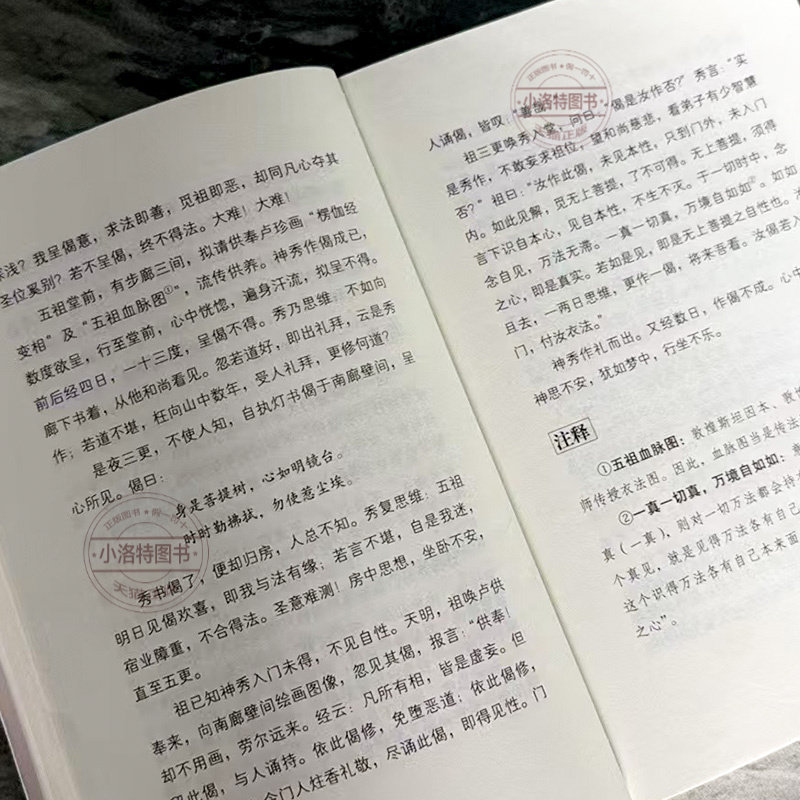 深浅？我呈偈意，求法即善，觅祖即恶，却同凡心夺其
圣位奚别？若不呈偈，终不得法。大难！大难！
五祖堂前，有步廊三间，拟请供奉卢珍画“楞伽经
变相”及“五祖血脉图①”，流传供养。神秀作偈成已，
数度欲呈，行至堂前，心中恍惚，遍身汗流，拟呈不得。
前后经四日，一十三度，呈偈不得。秀乃思维，不如向
廊下书着，从他和尚看见。忽若道好，即出礼拜，云是秀
作；若道不堪，枉向山中数年，受人礼拜，更修何道？
是夜三更，不使人知，自执灯书偈于南廊壁间，呈
心所见。偈曰：
身是菩提树，心如明镜台。
时时勤拂拭，勿使惹尘埃。
秀书偈了，便却归房，人总不知。秀复思维：五祖
明日见偈欢喜，即我与法有缘；若言不堪，自是我迷，
宿业障重，不合得法。圣意难测！房中思想，坐卧不安，
直至五更。
祖已知神秀入门未得，不见自性。天明，祖唤卢供
奉来，向南廊壁间绘画图像，忽见其偈，报言：“供奉！
却不用画，劳尔远来。经云：凡所有相，皆是虚妄。但
留此偈，与人诵持。依此偈修，免堕恶道；依此偈修，
令门人炷香礼敬，尽诵此偈，即得见性。门
人诵偈，皆叹：“善哉！”
祖三更唤秀入堂，问曰：“偈是汝作否？”秀言：“实
是秀作，不敢妄求祖位，望和尚慈悲，看弟子有少智慧
否？”祖曰：“汝作此偈，未见本性，只到门外，未入门
内。如此见解，觅无上菩提，了不可得。无上菩提，须得
言下识自本心，见自本性，不生不灭。于一切时中，念
念自见，万法无滞。一真一切真，万境自如如②。如如
之心，即是真实。若如是见，即是无上菩提之自性也。汝
且去，一两日思维，更作一偈，将来吾看。汝偈若入
门，付汝衣法。”
神秀作礼而出。又经数日，作偈不成。心中
神思不安，犹如梦中，行坐不乐。
注释
①五祖血脉图：敦煌斯坦因本、敦
师传授衣法图。因此，血脉图当是传法
②一真一切真，万境自如如：
真（一真），则对一切万法都会持
个真见，就是见得万法各有自己
这个识得万法各有自己本来面
之心”。
正版图书 假一罚十
小洛特图书
天猫正版
正版图书 假一罚十
小洛特图书